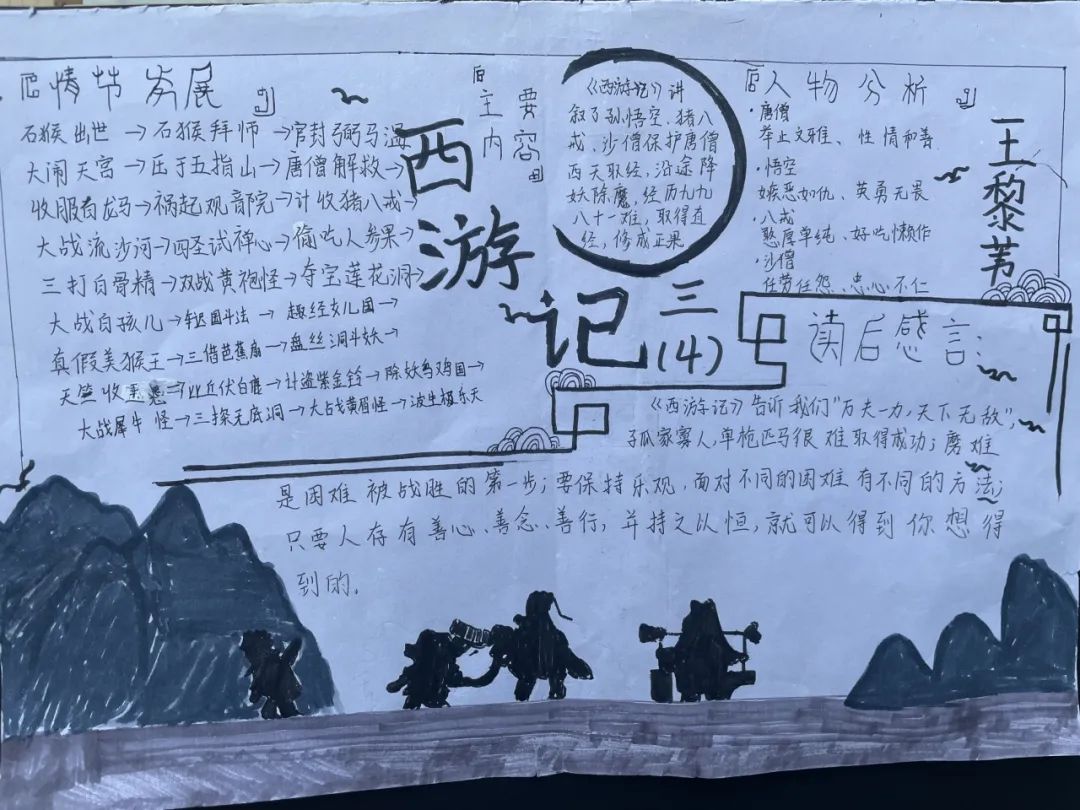 情节发展
石猴出世→石猴拜师→官封弼马温
大闹天宫→压于五指山→唐僧解救→
收服白龙马→祸起观音院→计收猪八戒→
大战流沙河→四圣试禅心→偷吃人参果→
三打白骨精→双战黄袍怪→夺宝莲花洞→
大战白孩儿→车迟国斗法→趣经女儿国→
真假美猴王→三借芭蕉扇→盘丝洞斗妖→
天竺收玉兔→比丘伏白鹿→计盗紫金铃→除妖乌鸡国→
大战犀牛怪→三探无底洞→大战黄眉怪→波生极乐天
西游记
三(4)
主要内容
《西游记》讲
叙了孙悟空、猪八
戒、沙僧保护唐僧
西天取经,沿途降
妖除魔,经历九九
八十一难,取得真
经,修成正果
人物分析
·唐僧
举止文雅、性情和善
·悟空
嫉恶如仇、英勇无畏
·八戒
憨厚单纯、好吃懒作
·沙僧
任劳任怨、忠心不仁
王黎苇
读后感言:
《西游记》告诉我们"万夫一力,天下无敌",
孤家寡人,单枪匹马很难取得成功;磨难
是困难被战胜的第一步;要保持乐观,面对不同的困难有不同的方法;
只要人存有善心、善念、善行,并持之以恒,就可以得到你想得
到的.